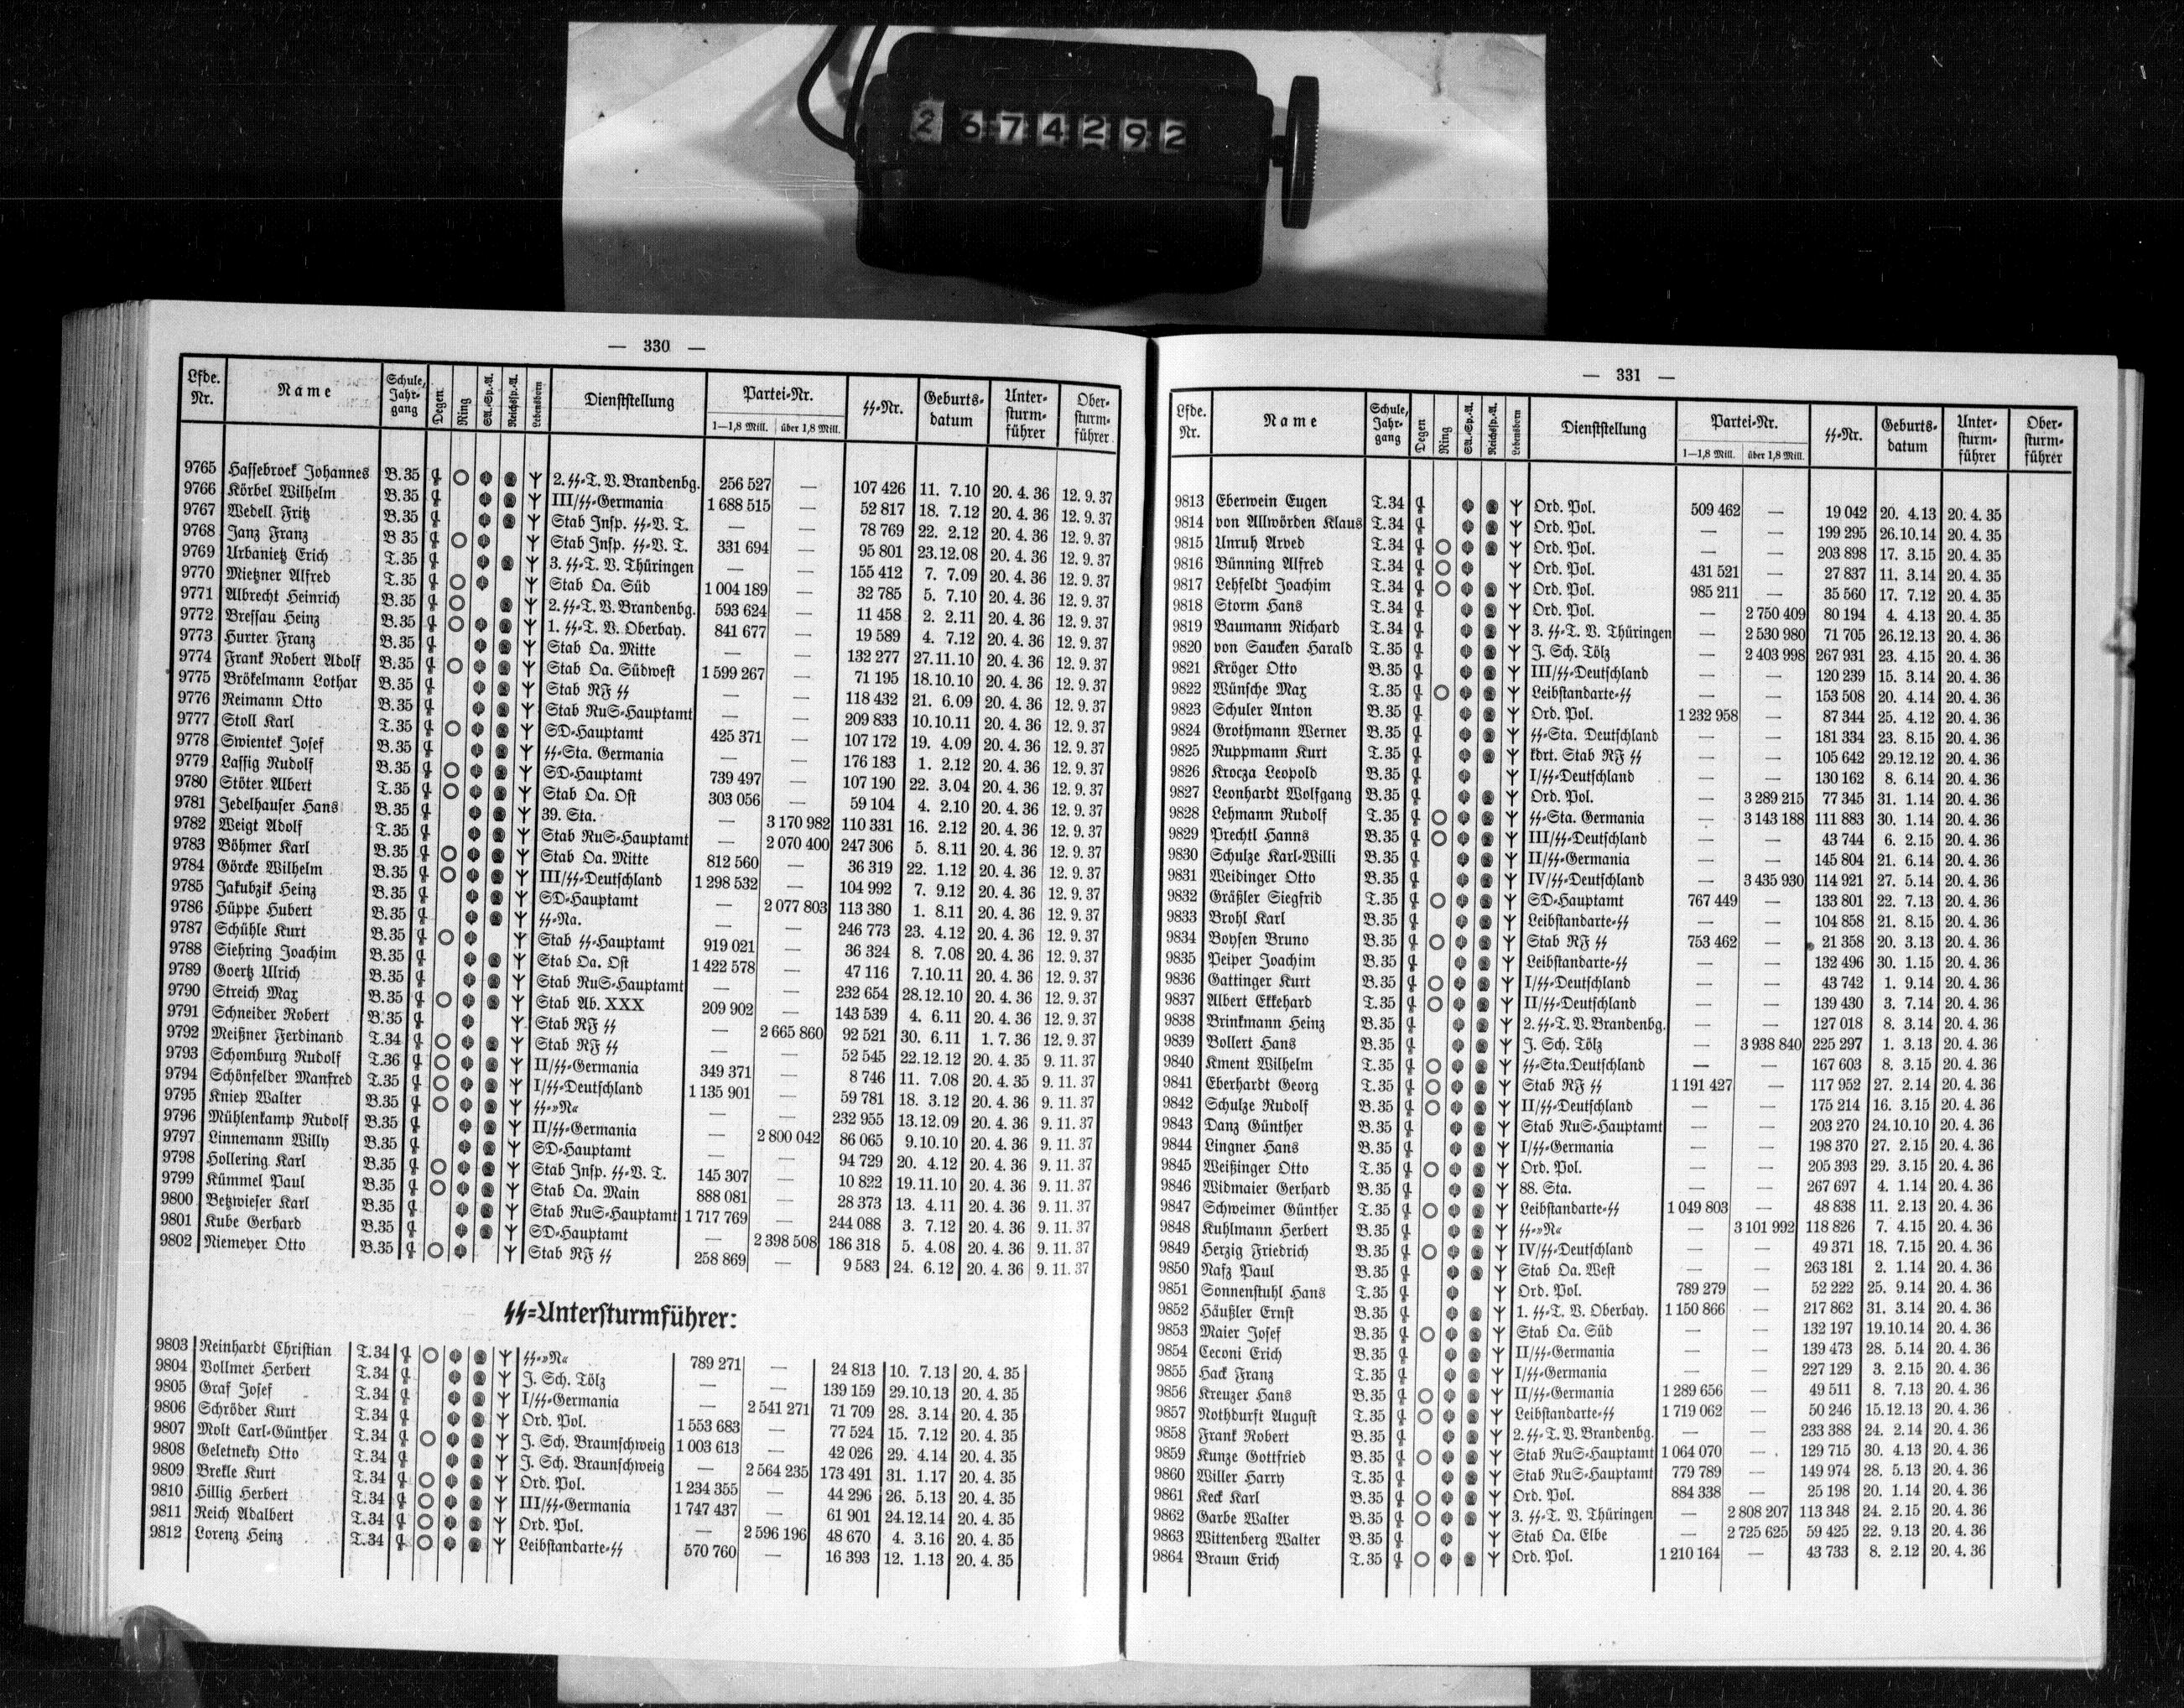 2 6 7 4 2 9 2
— 330 —
Lfde. Nr. Name Schule, Jahrgang Degen Ring SA.-Sp.-A. Reichssp.-A. Lebensborn Dienststellung Partei-Nr. 1—1,8 Mill. über 1,8 Mill. SS-Nr. Geburtsdatum Untersturmführer Obersturmführer
9765 Hassebroek Johannes B.35 2. SS-T. V. Brandenbg. 256 527 — 107 426 11. 7.10 20. 4. 36 12. 9. 37
9766 Körbel Wilhelm B.35 III/SS-Germania 1 688 515 — 52 817 18. 7.12 20. 4. 36 12. 9. 37
9767 Wedell Fritz B.35 Stab Insp. SS-V. T. — — 78 769 22. 2.12 20. 4. 36 12. 9. 37
9768 Janz Franz B 35 Stab Insp. SS-V. T. 331 694 — 95 801 23.12.08 20. 4. 36 12. 9. 37
9769 Urbanietz Erich T.35 3. SS-T. V. Thüringen — — 155 412 7. 7.09 20. 4. 36 12. 9. 37
9770 Mietzner Alfred T.35 Stab Oa. Süd 1 004 189 — 32 785 5. 7.10 20. 4. 36 12. 9. 37
9771 Albrecht Heinrich B.35 2. SS-T. V. Brandenbg. 593 624 — 11 458 2. 2.11 20. 4. 36 12. 9. 37
9772 Bressau Heinz B.35 1. SS-T. V. Oberbay. 841 677 — 19 589 4. 7.12 20. 4. 36 12. 9. 37
9773 Hurter Franz B.35 Stab Oa. Mitte — — 132 277 27.11.10 20. 4. 36 12. 9. 37
9774 Frank Robert Adolf B.35 Stab Oa. Südwest 1 599 267 — 71 195 18.10.10 20. 4. 36 12. 9. 37
9775 Brökelmann Lothar B.35 Stab RF SS — — 118 432 21. 6.09 20. 4. 36 12. 9. 37
9776 Reimann Otto B.35 Stab RuS-Hauptamt — — 209 833 10.10.11 20. 4. 36 12. 9. 37
9777 Stoll Karl T.35 SD-Hauptamt 425 371 — 107 172 19. 4.09 20. 4. 36 12. 9. 37
9778 Swientek Josef B.35 SS-Sta. Germania — — 176 183 1. 2.12 20. 4. 36 12. 9. 37
9779 Lassig Rudolf B.35 SD-Hauptamt 739 497 — 107 190 22. 3.04 20. 4. 36 12. 9. 37
9780 Stöter Albert T.35 Stab Oa. Ost 303 056 — 59 104 4. 2.10 20. 4. 36 12. 9. 37
9781 Jedelhauser Hans B.35 39. Sta. — 3 170 982 110 331 16. 2.12 20. 4. 36 12. 9. 37
9782 Weigt Adolf T.35 Stab RuS-Hauptamt — 2 070 400 247 306 5. 8.11 20. 4. 36 12. 9. 37
9783 Böhmer Karl B.35 Stab Oa. Mitte 812 560 — 36 319 22. 1.12 20. 4. 36 12. 9. 37
9784 Görcke Wilhelm B.35 III/SS-Deutschland 1 298 532 — 104 992 7. 9.12 20. 4. 36 12. 9. 37
9785 Jakubzik Heinz B.35 SD-Hauptamt — 2 077 803 113 380 1. 8.11 20. 4. 36 12. 9. 37
9786 Hüppe Hubert B.35 SS-Na. — — 246 773 23. 4.12 20. 4. 36 12. 9. 37
9787 Schühle Kurt B.35 Stab SS-Hauptamt 919 021 — 36 324 8. 7.08 20. 4. 36 12. 9. 37
9788 Siehring Joachim B.35 Stab Oa. Ost 1 422 578 — 47 116 7.10.11 20. 4. 36 12. 9. 37
9789 Goertz Ulrich B.35 Stab RuS-Hauptamt — — 232 654 28.12.10 20. 4. 36 12. 9. 37
9790 Streich Max B.35 Stab Ab. XXX 209 902 — 143 539 4. 6.11 20. 4. 36 12. 9. 37
9791 Schneider Robert B.35 Stab RF SS — 2 665 860 92 521 30. 6.11 1. 7. 36 12. 9. 37
9792 Meißner Ferdinand T.34 Stab RF SS — — 52 545 22.12.12 20. 4. 35 9. 11. 37
9793 Schomburg Rudolf T.36 II/SS-Germania 349 371 — 8 746 11. 7.08 20. 4. 35 9. 11. 37
9794 Schönfelder Manfred T.35 I/SS-Deutschland 1 135 901 — 59 781 18. 3.12 20. 4. 36 9. 11. 37
9795 Kniep Walter B.35 SS-»N« — — 232 955 13.12.09 20. 4. 36 9. 11. 37
9796 Mühlenkamp Rudolf B.35 II/SS-Germania — 2 800 042 86 065 9.10.10 20. 4. 36 9. 11. 37
9797 Linnemann Willy B.35 SD-Hauptamt — — 94 729 20. 4.12 20. 4. 36 9. 11. 37
9798 Hollering Karl B.35 Stab Insp. SS-V. T. 145 307 — 10 822 19.11.10 20. 4. 36 9. 11. 37
9799 Kümmel Paul B.35 Stab Oa. Main 888 081 — 28 373 13. 4.11 20. 4. 36 9. 11. 37
9800 Betzwieser Karl B.35 Stab RuS-Hauptamt 1 717 769 — 244 088 3. 7.12 20. 4. 36 9. 11. 37
9801 Kube Gerhard B.35 SD-Hauptamt — 2 398 508 186 318 5. 4.08 20. 4. 36 9. 11. 37
9802 Niemeyer Otto B.35 Stab RF SS 258 869 — 9 583 24. 6.12 20. 4. 36 9. 11. 37
SS-Untersturmführer:
9803 Reinhardt Christian T.34 SS-»N« 789 271 — 24 813 10. 7.13 20. 4. 35
9804 Vollmer Herbert T.34 J. Sch. Tölz — — 139 159 29.10.13 20. 4. 35
9805 Graf Josef T.34 I/SS-Germania — 2 541 271 71 709 28. 3.14 20. 4. 35
9806 Schröder Kurt T.34 Ord. Pol. 1 553 683 — 77 524 15. 7.12 20. 4. 35
9807 Molt Carl-Günther T.34 J. Sch. Braunschweig 1 003 613 — 42 026 29. 4.14 20. 4. 35
9808 Geletneky Otto T.34 J. Sch. Braunschweig — 2 564 235 173 491 31. 1.17 20. 4. 35
9809 Brekle Kurt T.34 Ord. Pol. 1 234 355 — 44 296 26. 5.13 20. 4. 35
9810 Hillig Herbert T.34 III/SS-Germania 1 747 437 — 61 901 24.12.14 20. 4. 35
9811 Reich Adalbert T.34 Ord. Pol. — 2 596 196 48 670 4. 3.16 20. 4. 35
9812 Lorenz Heinz T.34 Leibstandarte-SS 570 760 — 16 393 12. 1.13 20. 4. 35
— 331 —
Lfde. Nr. Name Schule, Jahrgang Degen Ring SA.-Sp.-A. Reichssp.-A. Lebensborn Dienststellung Partei-Nr. 1—1,8 Mill. über 1,8 Mill. SS-Nr. Geburtsdatum Untersturmführer Obersturmführer
9813 Eberwein Eugen T.34 Ord. Pol. 509 462 — 19 042 20. 4.13 20. 4. 35
9814 von Allwörden Klaus T.34 Ord. Pol. — — 199 295 26.10.14 20. 4. 35
9815 Unruh Arved T.34 Ord. Pol. — — 203 898 17. 3.15 20. 4. 35
9816 Bünning Alfred T.34 Ord. Pol. 431 521 — 27 837 11. 3.14 20. 4. 35
9817 Lehfeldt Joachim T.34 Ord. Pol. 985 211 — 35 560 17. 7.12 20. 4. 35
9818 Storm Hans T.34 Ord. Pol. — 2 750 409 80 194 4. 4.13 20. 4. 35
9819 Baumann Richard T.34 3. SS-T. V. Thüringen — 2 530 980 71 705 26.12.13 20. 4. 36
9820 von Saucken Harald T.35 J. Sch. Tölz — 2 403 998 267 931 23. 4.15 20. 4. 36
9821 Kröger Otto B.35 III/SS-Deutschland — — 120 239 15. 3.14 20. 4. 36
9822 Wünsche Max T.35 Leibstandarte-SS — — 153 508 20. 4.14 20. 4. 36
9823 Schuler Anton B.35 Ord. Pol. 1 232 958 — 87 344 25. 4.12 20. 4. 36
9824 Grothmann Werner B.35 SS-Sta. Deutschland — — 181 334 23. 8.15 20. 4. 36
9825 Ruppmann Kurt T.35 kdrt. Stab RF SS — — 105 642 29.12.12 20. 4. 36
9826 Krocza Leopold B.35 I/SS-Deutschland — — 130 162 8. 6.14 20. 4. 36
9827 Leonhardt Wolfgang B.35 Ord. Pol. — 3 289 215 77 345 31. 1.14 20. 4. 36
9828 Lehmann Rudolf T.35 SS-Sta. Germania — 3 143 188 111 883 30. 1.14 20. 4. 36
9829 Prechtl Hanns B.35 III/SS-Deutschland — — 43 744 6. 2.15 20. 4. 36
9830 Schulze Karl-Willi B.35 II/SS-Germania — — 145 804 21. 6.14 20. 4. 36
9831 Weidinger Otto B.35 IV/SS-Deutschland — 3 435 930 114 921 27. 5.14 20. 4. 36
9832 Gräßler Siegfrid T.35 SD-Hauptamt 767 449 — 133 801 22. 7.13 20. 4. 36
9833 Brohl Karl B.35 Leibstandarte-SS — — 104 858 21. 8.15 20. 4. 36
9834 Boysen Bruno B.35 Stab RF SS 753 462 — 21 358 20. 3.13 20. 4. 36
9835 Peiper Joachim B.35 Leibstandarte-SS — — 132 496 30. 1.15 20. 4. 36
9836 Gattinger Kurt B.35 I/SS-Deutschland — — 43 742 1. 9.14 20. 4. 36
9837 Albert Ekkehard T.35 II/SS-Deutschland — — 139 430 3. 7.14 20. 4. 36
9838 Brinkmann Heinz B.35 2. SS-T. V. Brandenbg. — — 127 018 8. 3.14 20. 4. 36
9839 Bollert Hans B.35 J. Sch. Tölz — 3 938 840 225 297 1. 3.13 20. 4. 36
9840 Kment Wilhelm T.35 SS-Sta. Deutschland — — 167 603 8. 3.15 20. 4. 36
9841 Eberhardt Georg T.35 Stab RF SS 1 191 427 — 117 952 27. 2.14 20. 4. 36
9842 Schulze Rudolf B.35 II/SS-Deutschland — — 175 214 16. 3.15 20. 4. 36
9843 Danz Günther B.35 Stab RuS-Hauptamt — — 203 270 24.10.10 20. 4. 36
9844 Lingner Hans B.35 I/SS-Germania — — 198 370 27. 2.15 20. 4. 36
9845 Weißinger Otto T.35 Ord. Pol. — — 205 393 29. 3.15 20. 4. 36
9846 Widmaier Gerhard B.35 88. Sta. — — 267 697 4. 1.14 20. 4. 36
9847 Schweimer Günther T.35 Leibstandarte-SS 1 049 803 — 48 838 11. 2.13 20. 4. 36
9848 Kuhlmann Herbert B.35 SS-»N« — 3 101 992 118 826 7. 4.15 20. 4. 36
9849 Herzig Friedrich B.35 IV/SS-Deutschland — — 49 371 18. 7.15 20. 4. 36
9850 Nafz Paul B.35 Stab Oa. West — — 263 181 2. 1.14 20. 4. 36
9851 Sonnenstuhl Hans T.35 Ord. Pol. 789 279 — 52 222 25. 9.14 20. 4. 36
9852 Häußler Ernst B.35 1. SS-T. V. Oberbay. 1 150 866 — 217 862 31. 3.14 20. 4. 36
9853 Maier Josef B.35 Stab Oa. Süd — — 132 197 19.10.14 20. 4. 36
9854 Ceconi Erich B.35 II/SS-Germania — — 139 473 28. 5.14 20. 4. 36
9855 Hack Franz T.35 I/SS-Germania — — 227 129 3. 2.15 20. 4. 36
9856 Kreuzer Hans B.35 II/SS-Germania 1 289 656 — 49 511 8. 7.13 20. 4. 36
9857 Nothdurft August T.35 Leibstandarte-SS 1 719 062 — 50 246 15.12.13 20. 4. 36
9858 Frank Robert B.35 2. SS-T. V. Brandenbg. — — 233 388 24. 2.14 20. 4. 36
9859 Kunze Gottfried B.35 Stab RuS-Hauptamt 1 064 070 — 129 715 30. 4.13 20. 4. 36
9860 Willer Harry T.35 Stab RuS-Hauptamt 779 789 — 149 974 28. 5.13 20. 4. 36
9861 Keck Karl B.35 Ord. Pol. 884 338 — 25 198 20. 1.14 20. 4. 36
9862 Garbe Walter B.35 3. SS-T. V. Thüringen — 2 808 207 113 348 24. 2.15 20. 4. 36
9863 Wittenberg Walter B.35 Stab Oa. Elbe — 2 725 625 59 425 22. 9.13 20. 4. 36
9864 Braun Erich T.35 Ord. Pol. 1 210 164 — 43 733 8. 2.12 20. 4. 36